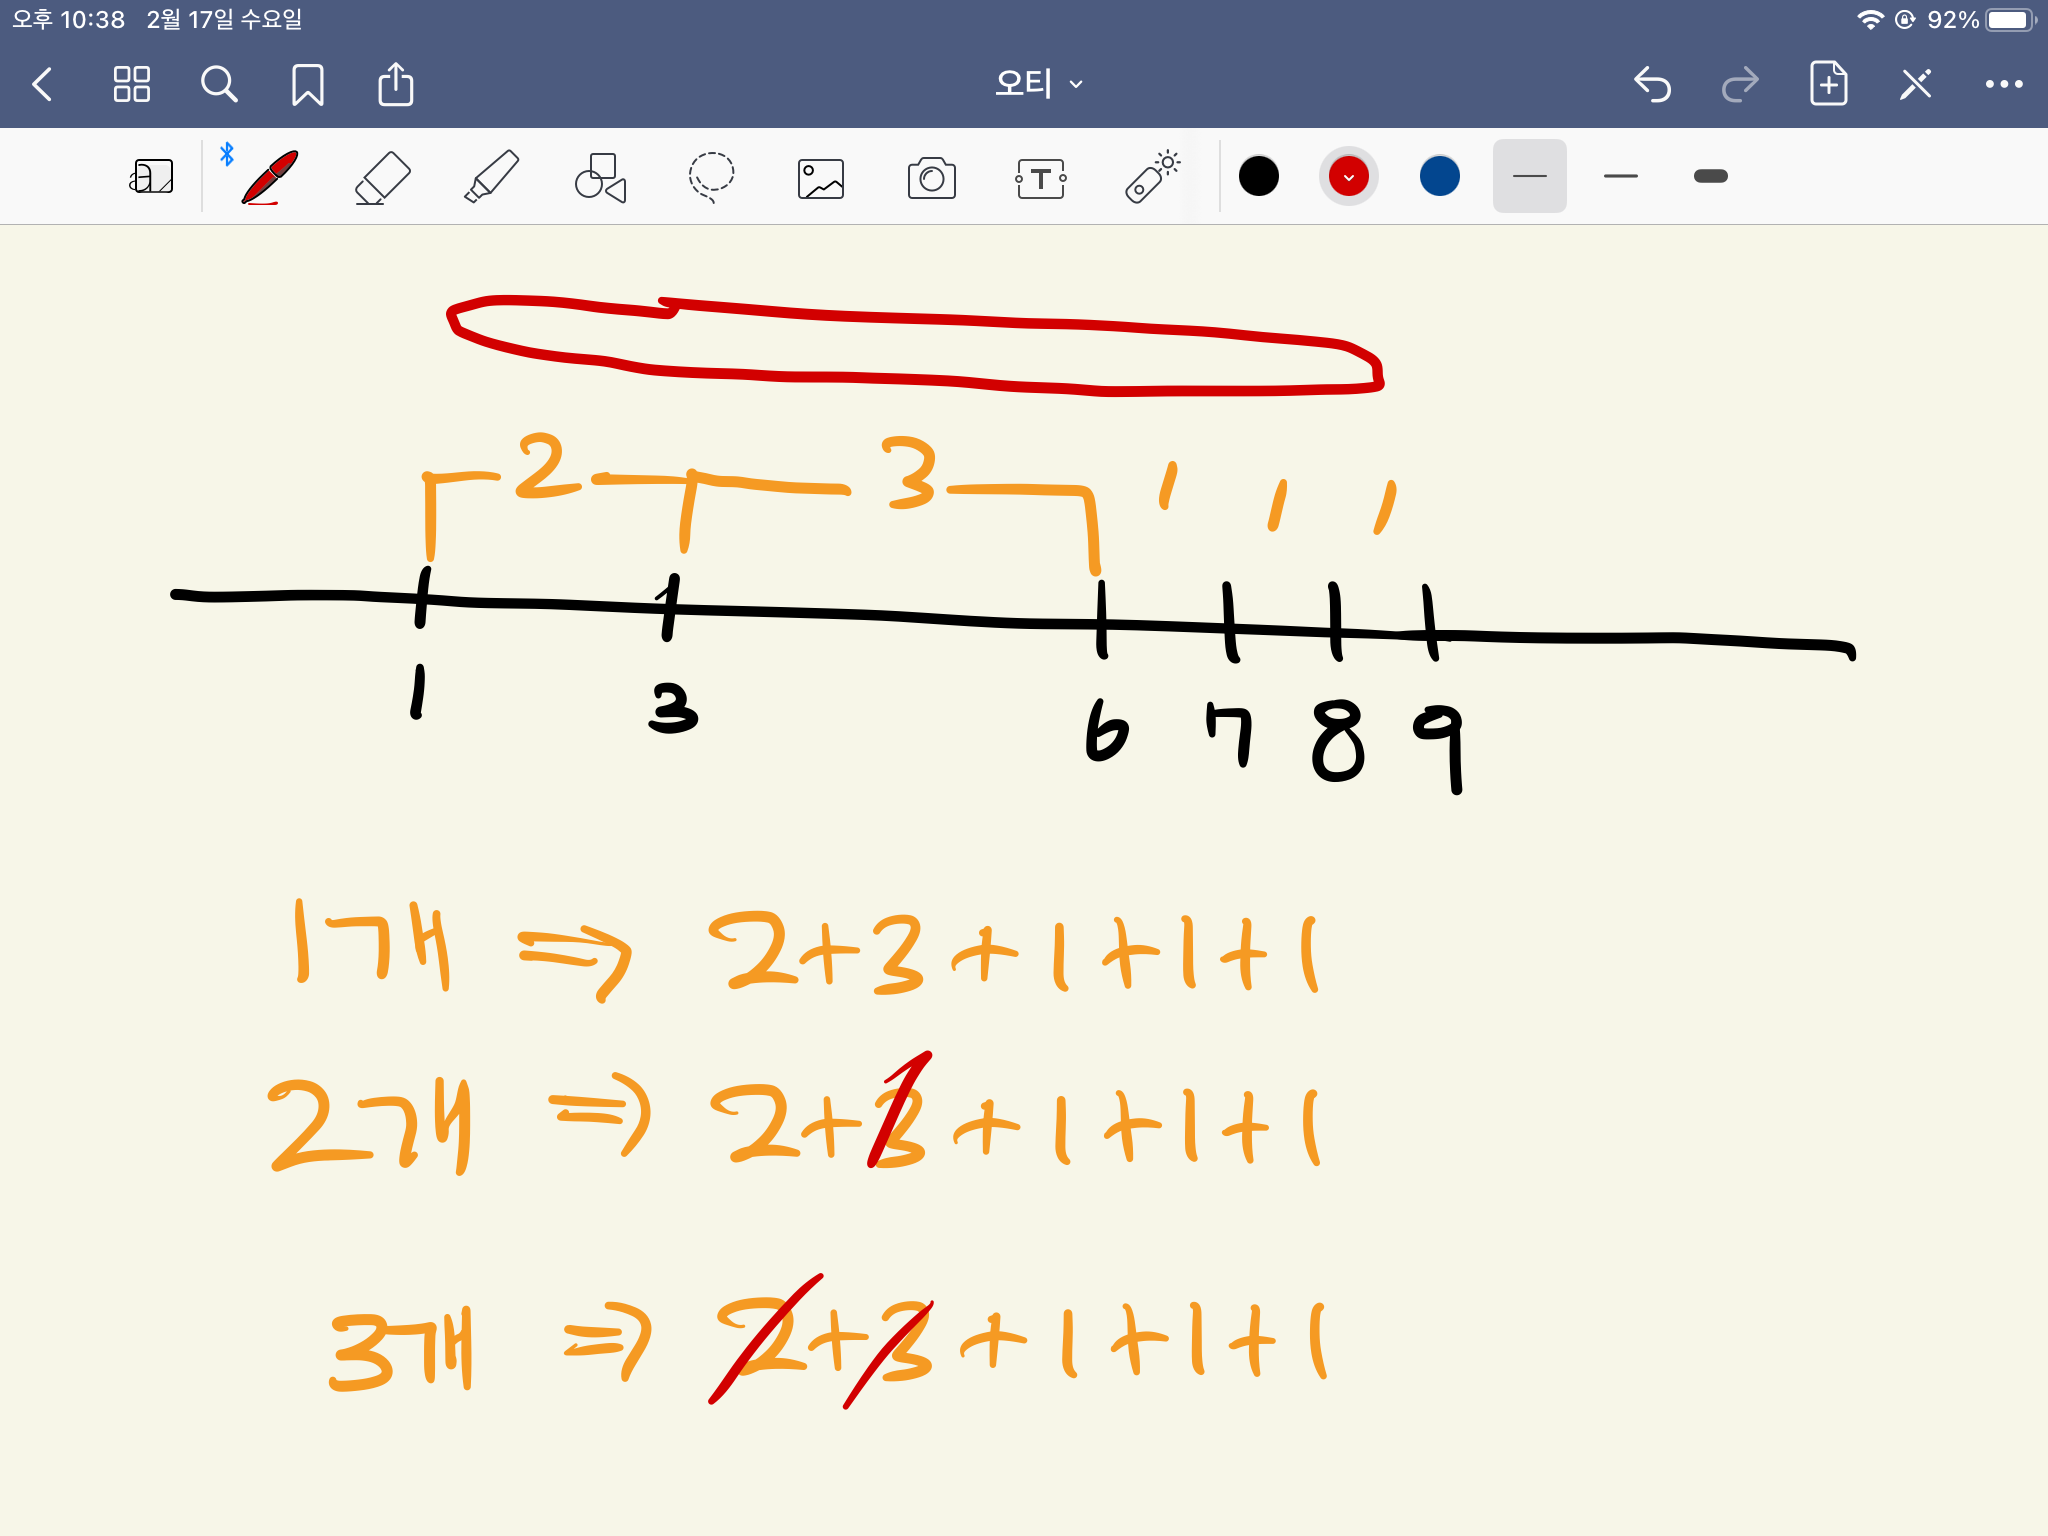 오후 10:38 2월 17일 수요일 92%
오티
T
2 3 1 1 1
1 3 6 7 8 9
1개 ⇒ 2+3+1+1+1
2개 ⇒ 2+3+1+1+1
3개 ⇒ 2+3+1+1+1